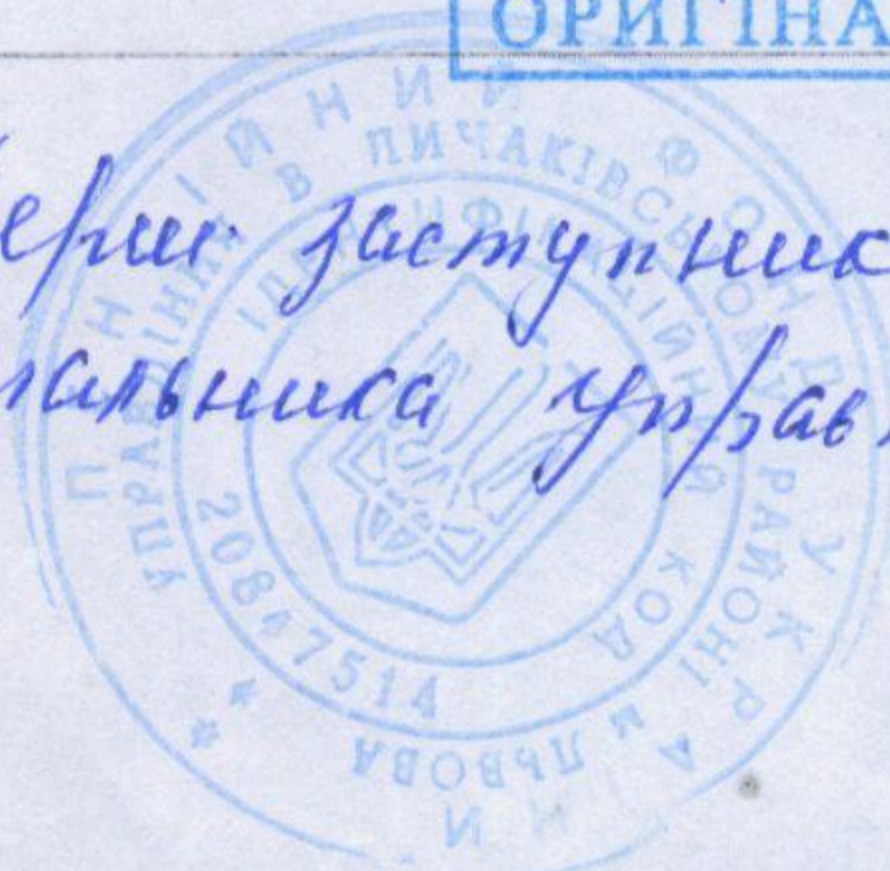 ОРИГІНА
ерш. заступник
альника управ
ПЕНСІЙНИЙ ФОНД УКРАЇНИ
УПРАВЛІННЯ В ЛИЧАКІВСЬКОМУ РАЙОНІ м ЛЬВОВА
ІДЕНТИФІКАЦІЙНИЙ КОД
20847514